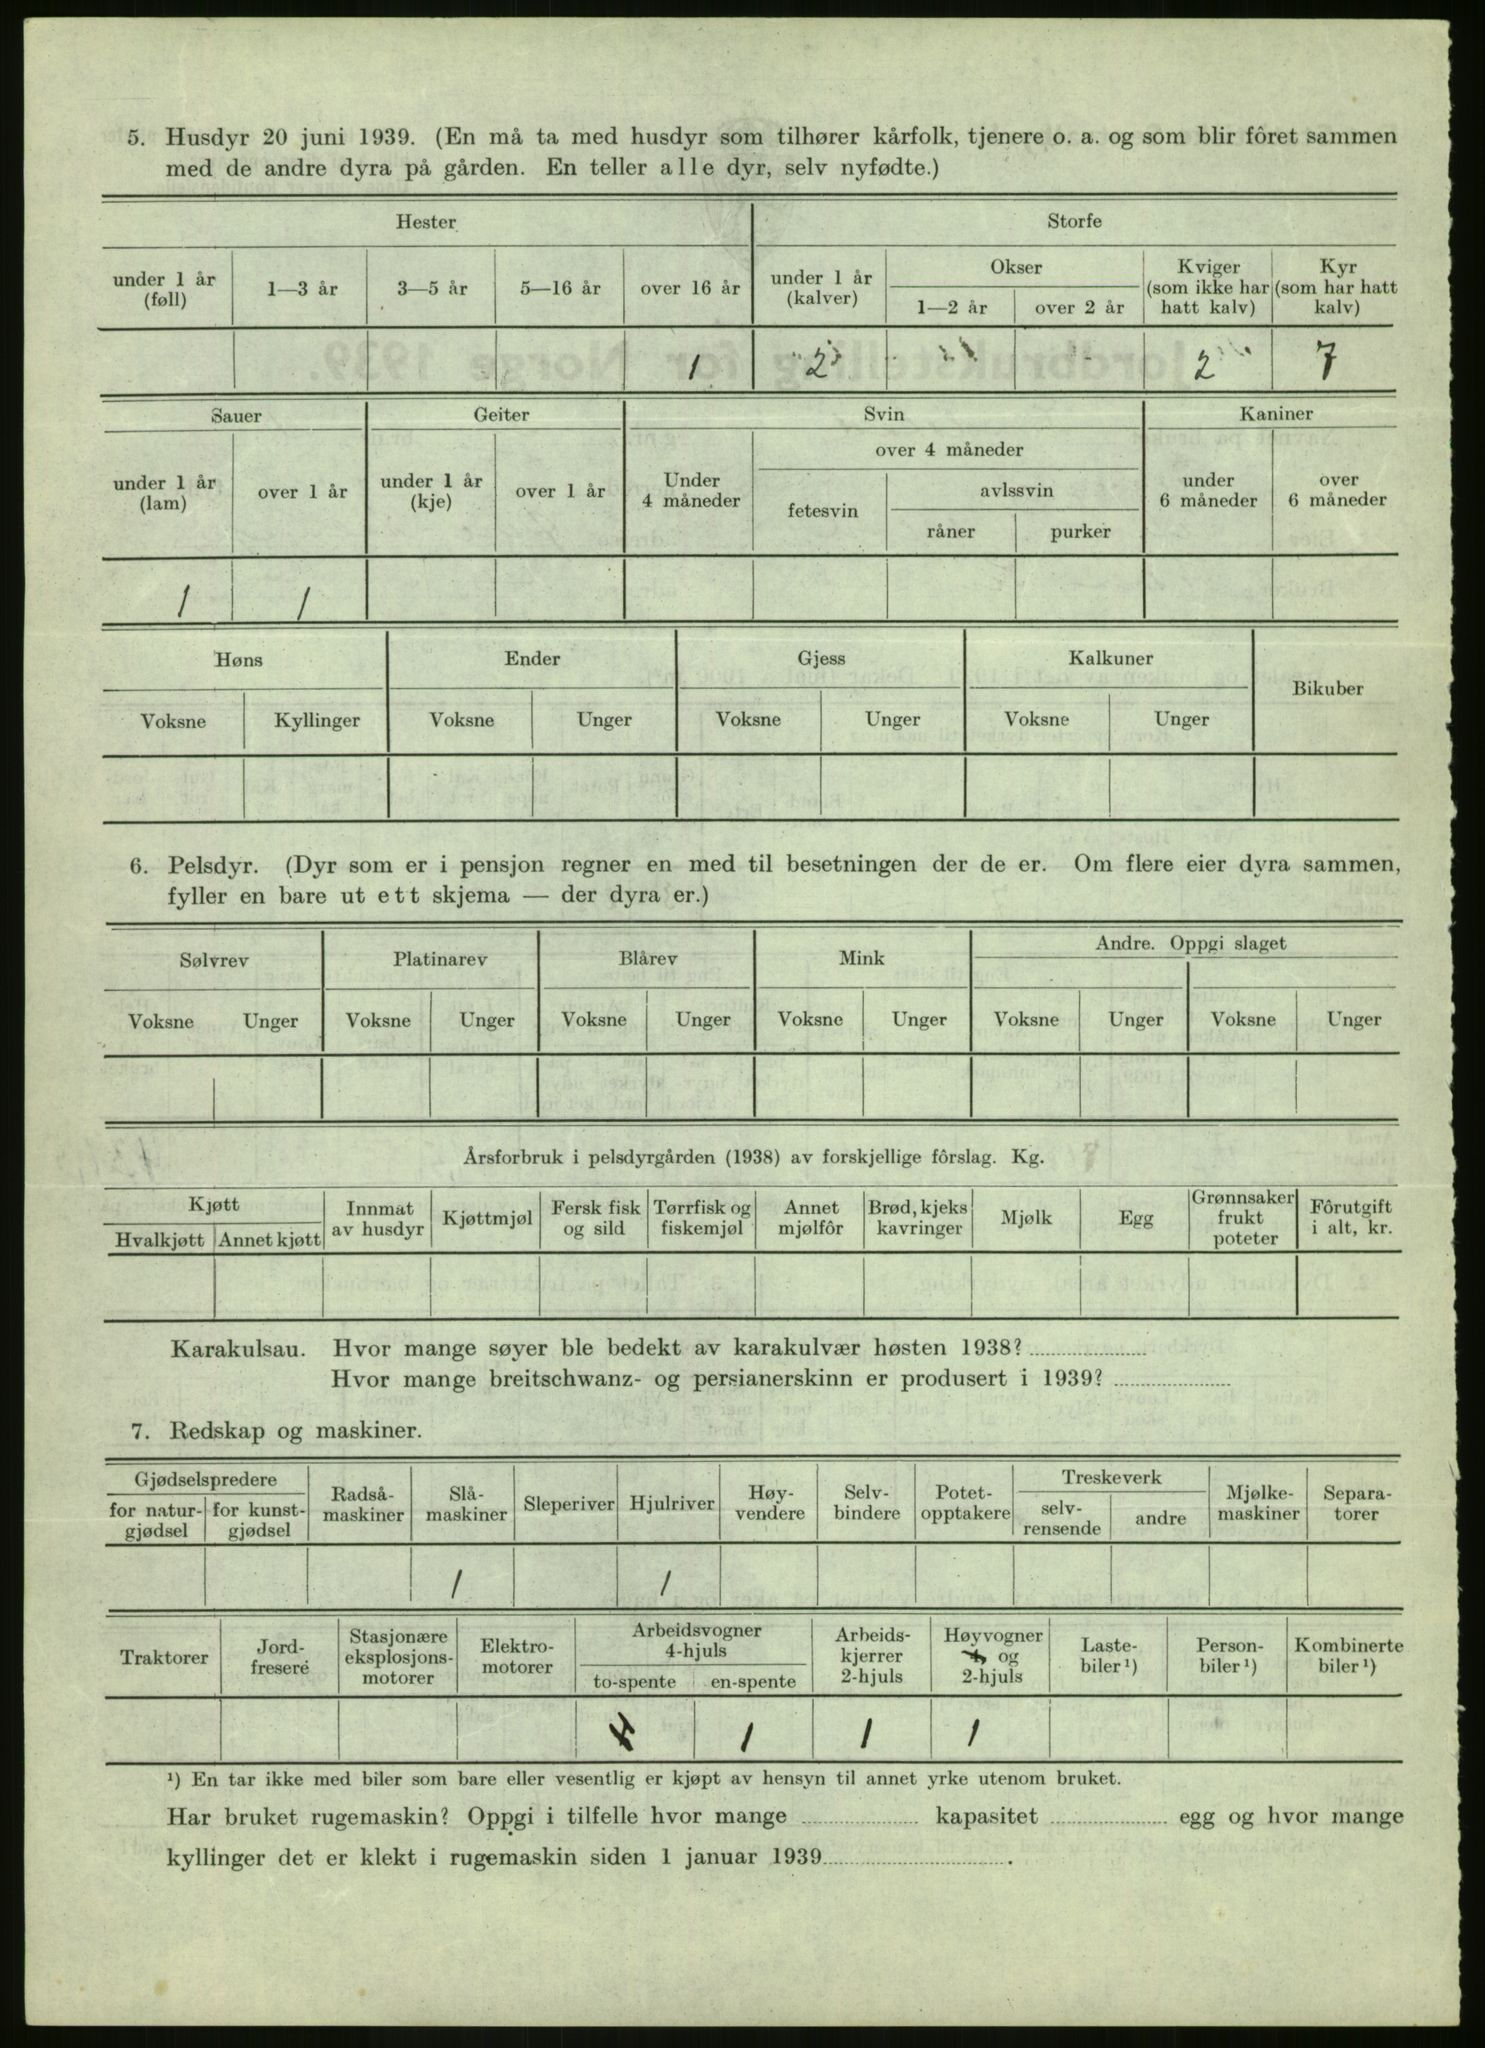 5. Husdyr 20 juni 1939. (En må ta med husdyr som tilhører kårfolk, tjenere o. a. og som blir fôret sammen
med de andre dyra på gården. En teller alle dyr, selv nyfødte.)
Hester Storfe
under 1 år (føll) 1—3 år 3—5 år 5—16 år over 16 år under 1 år (kalver) Okser 1—2 år over 2 år Kviger (som ikke har hatt kalv) Kyr (som har hatt kalv)
1 2 2 7
Sauer Geiter Svin Kaniner
under 1 år (lam) over 1 år under 1 år (kje) over 1 år Under 4 måneder over 4 måneder fetesvin avlssvin råner purker under 6 måneder over 6 måneder
1 1
Høns Ender Gjess Kalkuner Bikuber
Voksne Kyllinger Voksne Unger Voksne Unger Voksne Unger
6. Pelsdyr. (Dyr som er i pensjon regner en med til besetningen der de er. Om flere eier dyra sammen,
fyller en bare ut ett skjema — der dyra er.)
Sølvrev Platinarev Blårev Mink Andre. Oppgi slaget
Voksne Unger Voksne Unger Voksne Unger Voksne Unger Voksne Unger Voksne Unger
Årsforbruk i pelsdyrgården (1938) av forskjellige fôrslag. Kg.
Kjøtt Hvalkjøtt Annet kjøtt Innmat av husdyr Kjøttmjøl Fersk fisk og sild Tørrfisk og fiskemjøl Annet mjølfôr Brød, kjeks kavringer Mjølk Egg Grønnsaker frukt poteter Fôrutgift i alt, kr.
Karakulsau. Hvor mange søyer ble bedekt av karakulvær høsten 1938?
Hvor mange breitschwanz- og persianerskinn er produsert i 1939?
7. Redskap og maskiner.
Gjødselspredere for natur-gjødsel for kunst-gjødsel Radså-maskiner Slå-maskiner Sleperiver Hjulriver Høy-vendere Selv-bindere Potet-opptakere Treskeverk selv-rensende andre Mjølke-maskiner Separa-torer
1 1
Traktorer Jord-fresere Stasjonære eksplosjons-motorer Elektro-motorer Arbeidsvogner 4-hjuls to-spente en-spente Arbeids-kjerrer 2-hjuls Høyvogner 4 og 2-hjuls Laste-biler¹) Person-biler¹) Kombinerte biler¹)
1 1 1
¹) En tar ikke med biler som bare eller vesentlig er kjøpt av hensyn til annet yrke utenom bruket.
Har bruket rugemaskin? Oppgi i tilfelle hvor mange kapasitet egg og hvor mange
kyllinger det er klekt i rugemaskin siden 1 januar 1939.